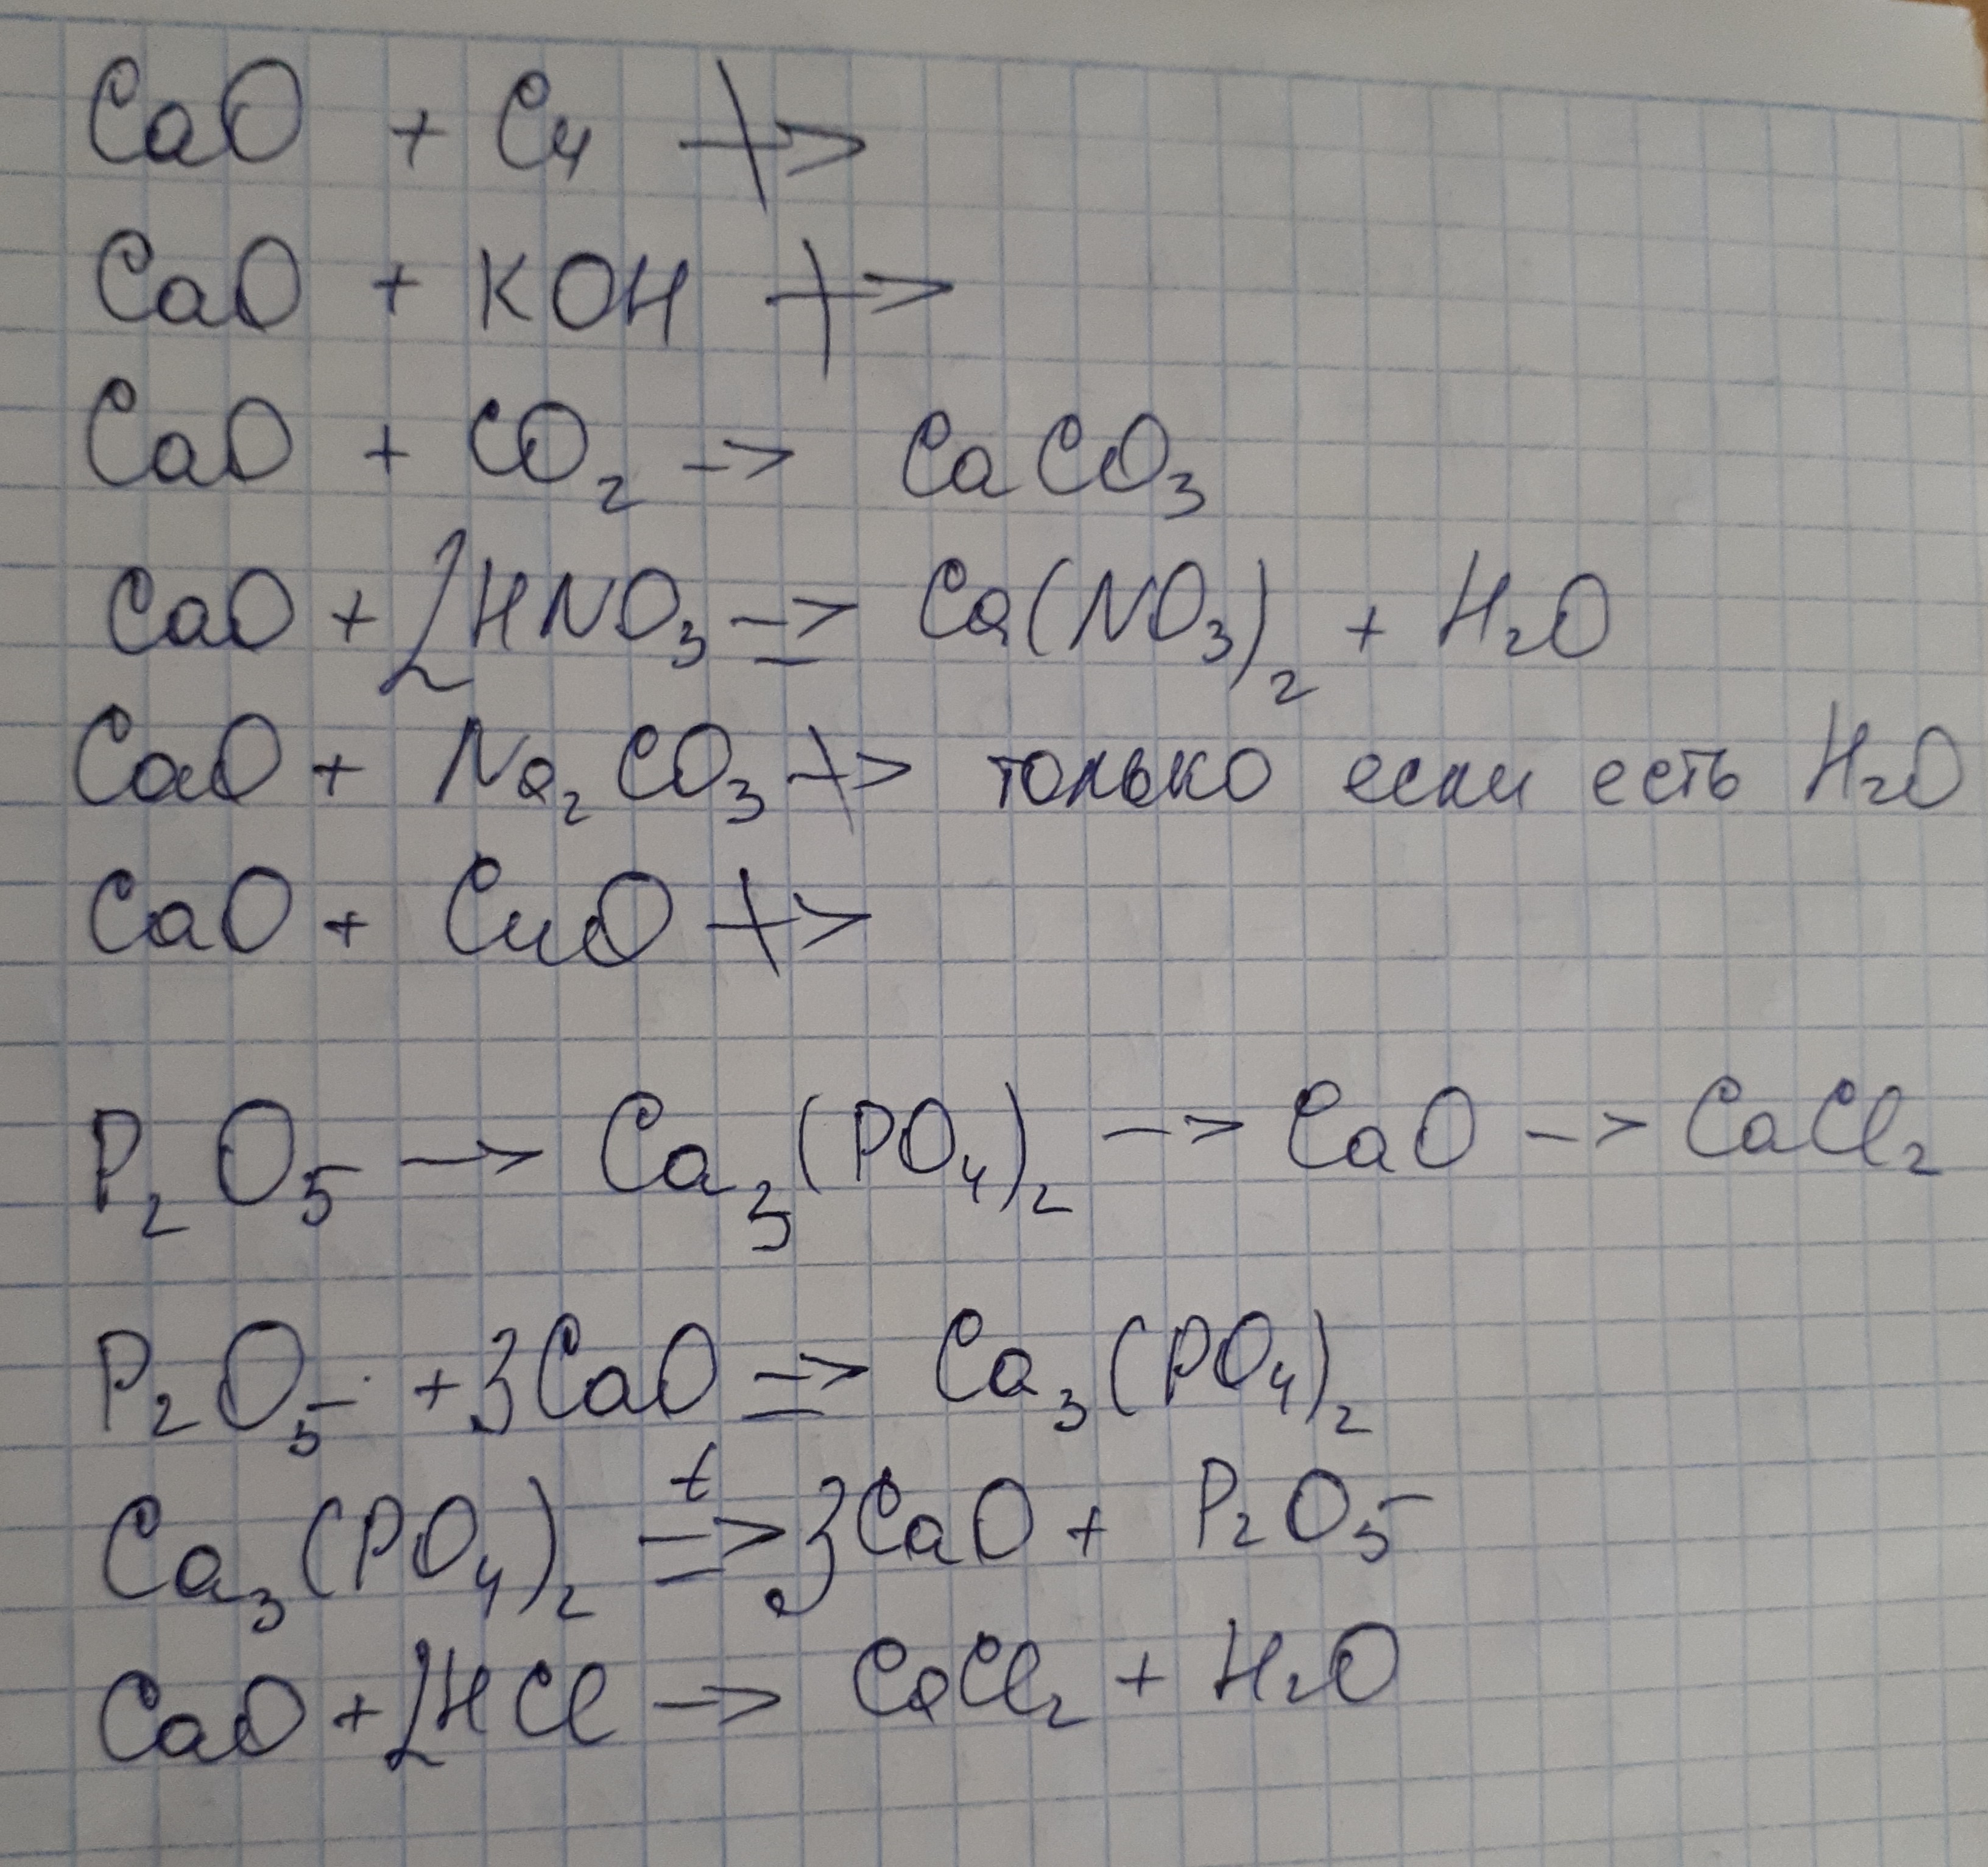 CaO + Cu ↛
CaO + KOH ↛
CaO + CO₂ → CaCO₃
CaO + 2HNO₃ ⇒ Ca(NO₃)₂ + H₂O
CaO + Na₂CO₃ ↛ только если есть H₂O
CaO + CuO ↛
P₂O₅ → Ca₃(PO₄)₂ → CaO → CaCl₂
P₂O₅ + 3CaO ⇒ Ca₃(PO₄)₂
Ca₃(PO₄)₂ ⇒ᵗ 3CaO + P₂O₅
CaO + 2HCl → CaCl₂ + H₂O